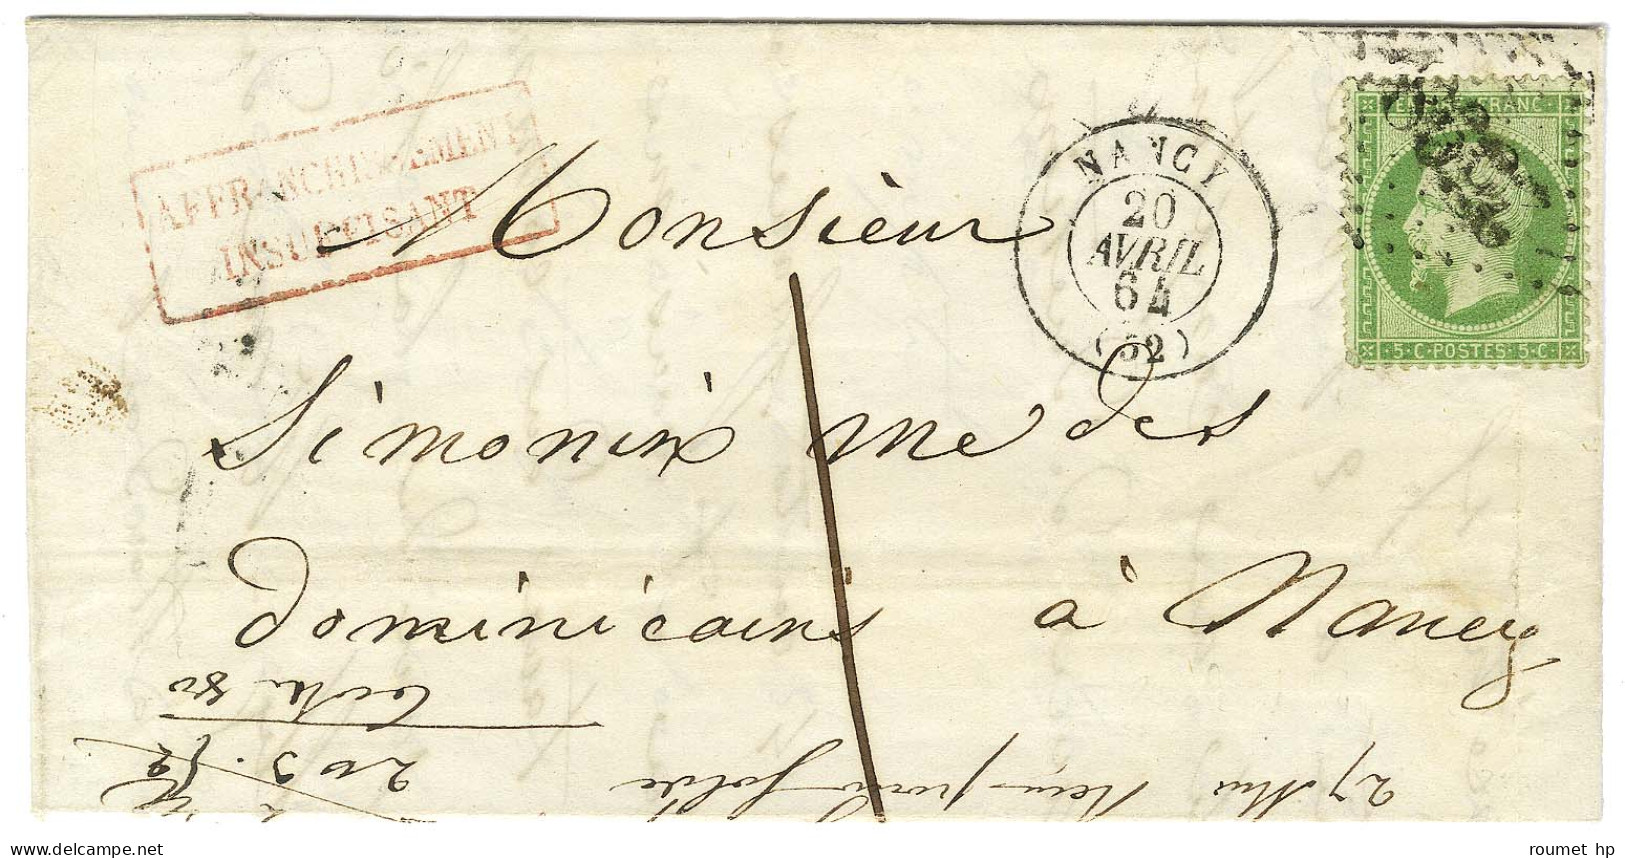 AFFRANCHISSEMENT
INSUFFISANT
NANCY
20
AVRIL
64
(52)
EMP FRANC
5·C·POSTES·5·C
Monsieur
Simonin me des
dominicains à Nancy
1
27 Mai pour solde
205.
roumet hp